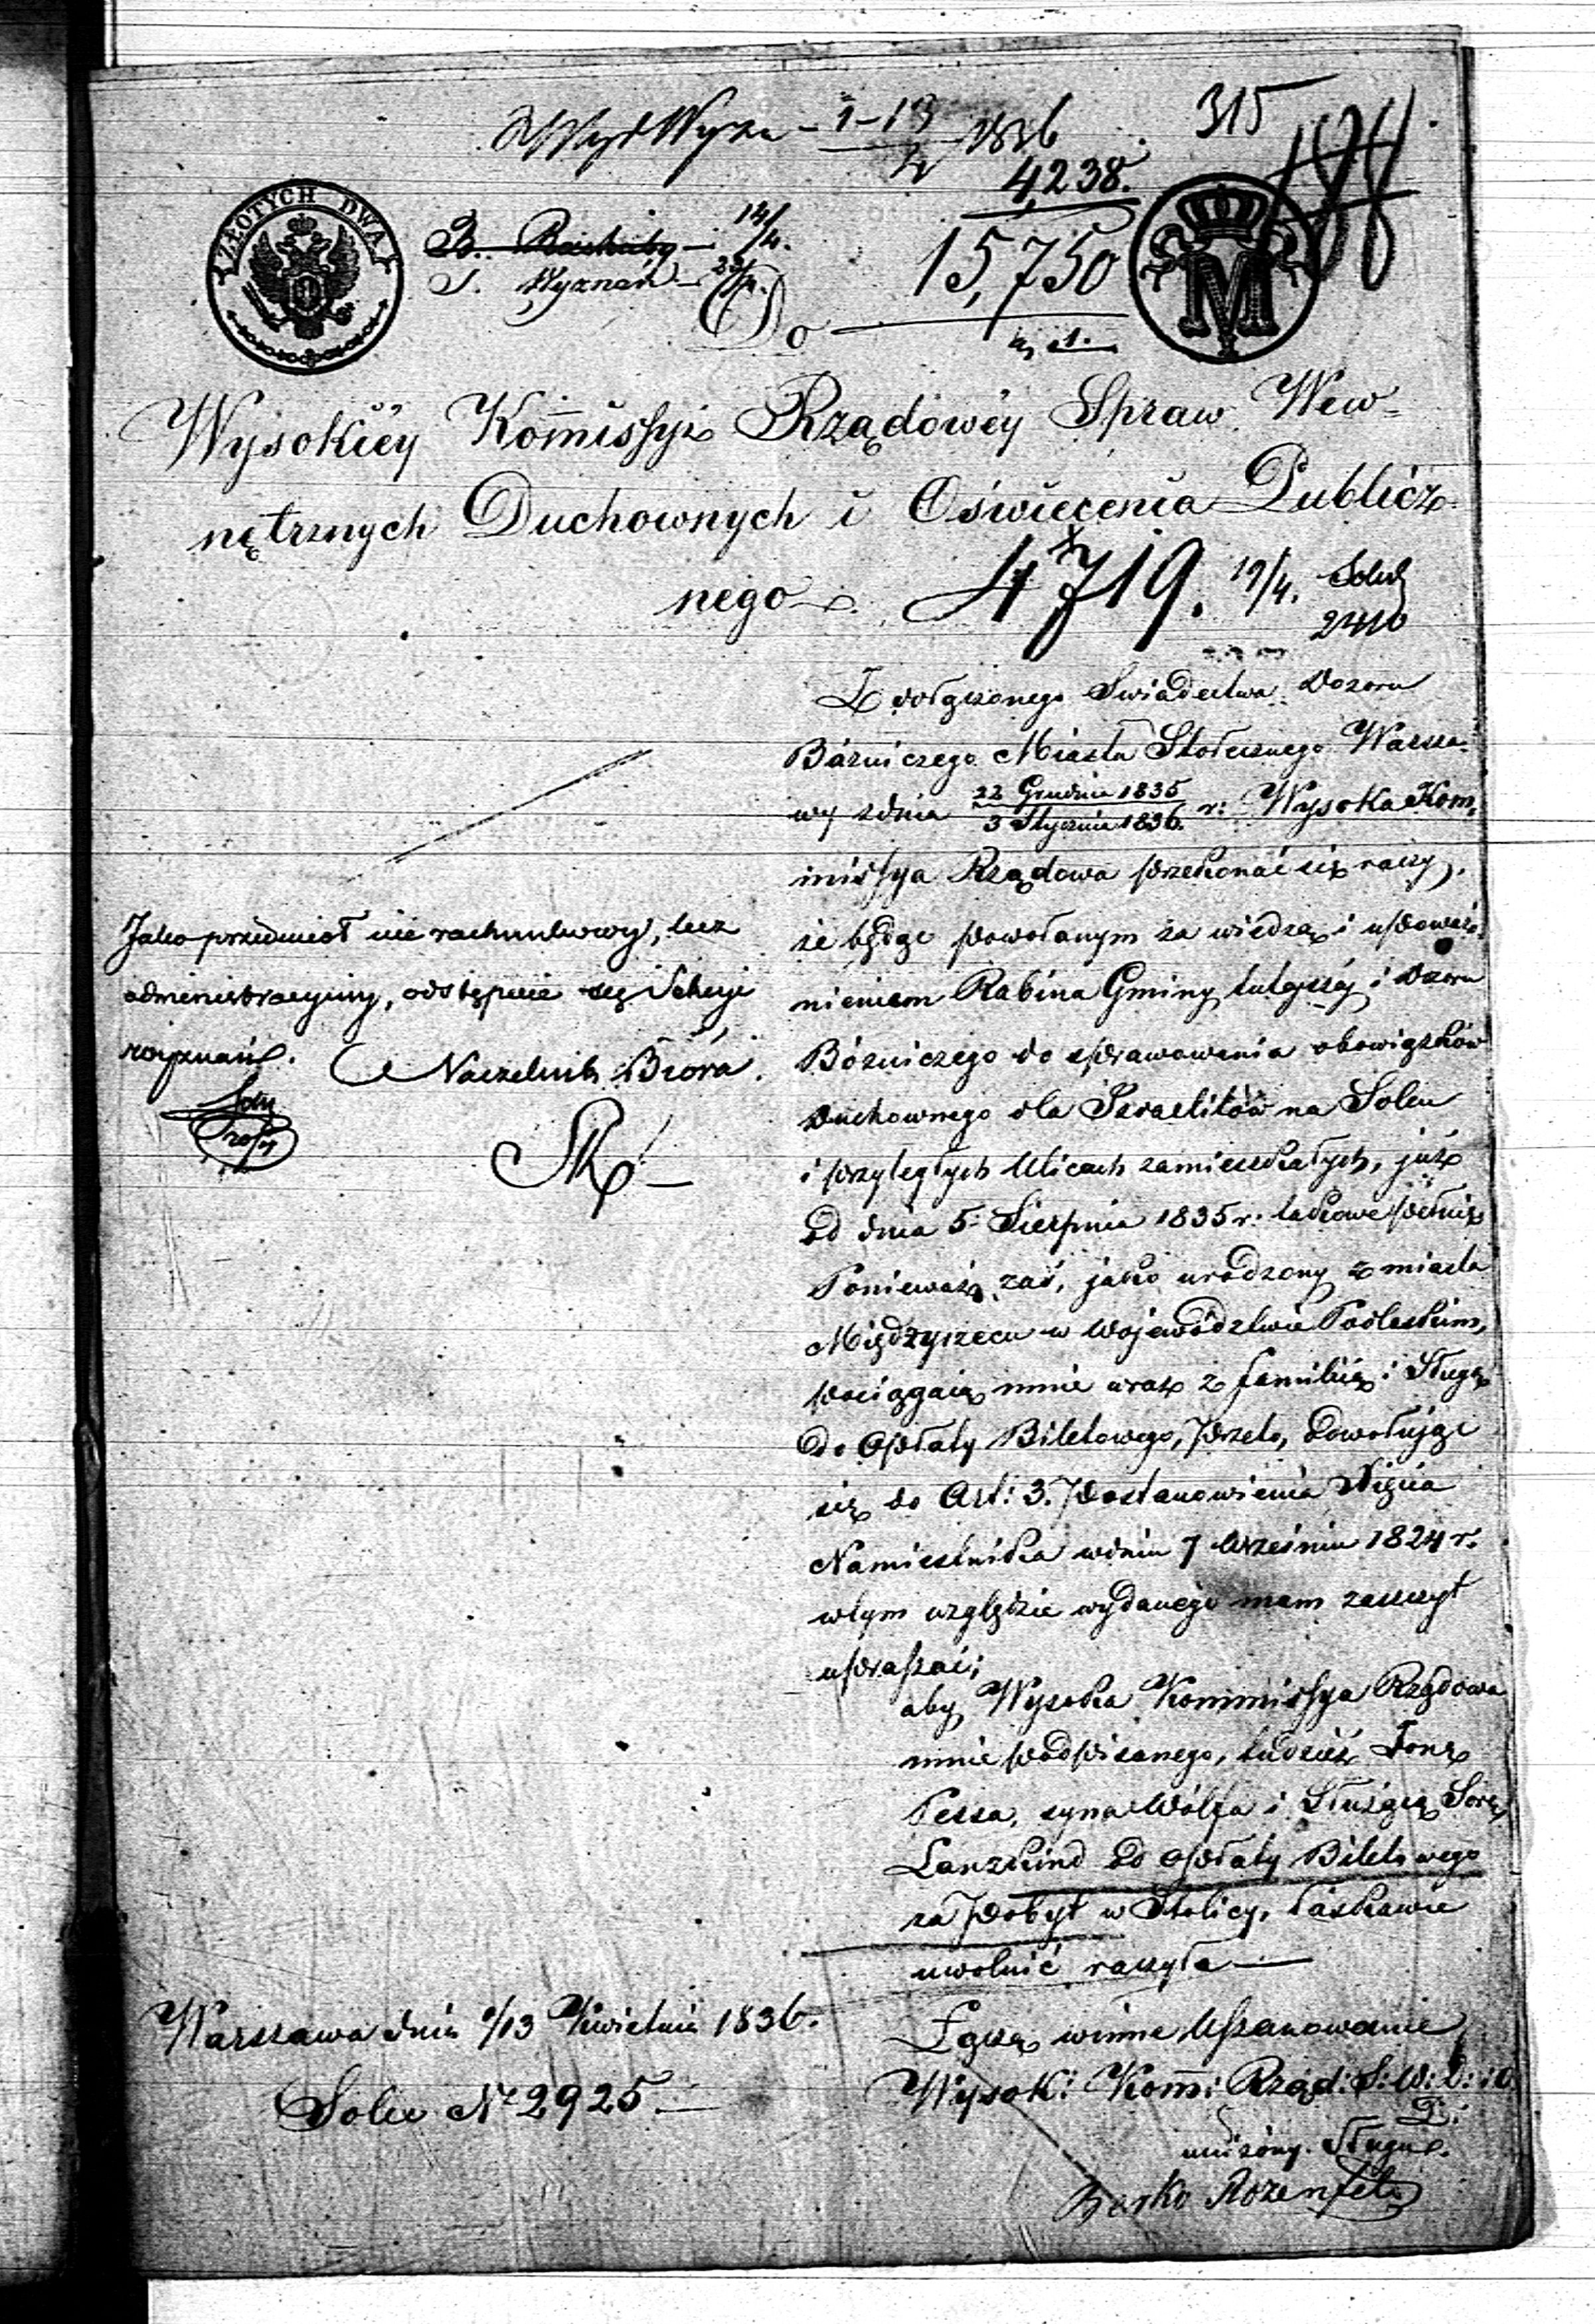 315
1836
4,238.
ZŁOTYCH DWA
14/4.
S. Wyznań 23/4.
15,750
Do
Wysokiéy Kommissyi Rządowéy Spraw Wew=
nętrznych Duchownych i Oświecenia Publicz
nego
4719. 19/4.
2410
Z dołączonego Swiadectwa Dozoru
Bożniczego Miasta Stołecznego Warsza=
wy zdnia 22 Grudnia 1835 / 3 Stycznia 1836. r: Wysoka Kom,
missya Rządowa przekonać się raczy,
że będąc powołanym za wiedzą i upoważ,
nieniem Rabina Gminy tutejszéj i Dozoru
Bózniczego do sprawowania obowiązków
Duchownego dla Izraelitów na Solcu
i przyległych Ulicach zamieszkałych, już
od dnia 5. Sierpnia 1835 r: takowe pełnię
Ponieważ zaś, jako urodzony z miasta
Międzyrzecu w Województwie Podleskim,
pociągaią mnie wraz z familią i Sługą
do Opłaty Biletowego, przeto, dowołując
się do Art: 3. Postanowienia Xięcia
Namiestnika wdniu 7 Września 1824 r.
wtym względzie wydanego mam zaszczyt
upraszać;
aby Wysoka Kommissya Rządowa
mnie podpisanego, tudzież Żonę
Pessa, syna Wólfa i Służącą Sorę
Lanzkind od opłaty Biletowego
za pobyt w Stolicy, łaskawie
uwolnić raczyła
Jako przedmiot nie rachunkowy, lecz
administracyiny, odstępuie się Sekcyi
wyznań.
Naczelnik Bióra.
Warszawa dnia 1/13 Kwietnia 1836.
Solec Nr 2925.
Łączę winne Uszanowanie
Wysok: Komm: Rząd: S: W: D: i O:
P:
uniżony Sługa.
Berko Rozenfeld